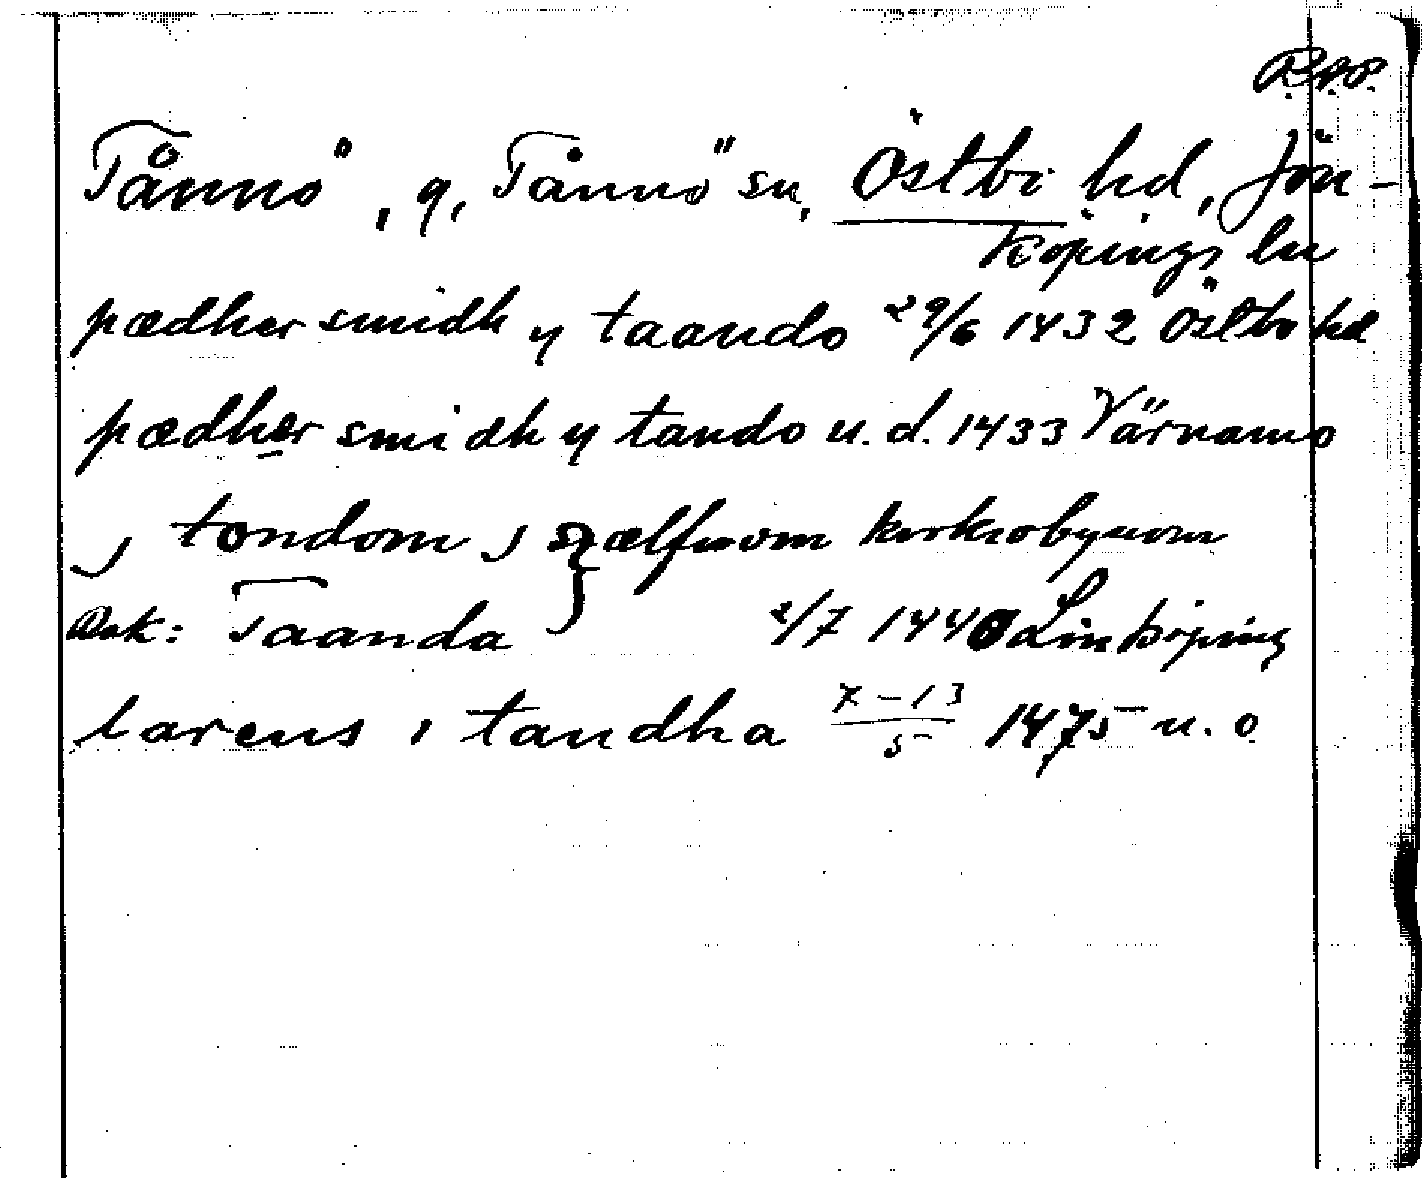 R.A.P.
Tånnö, g, Tånnö sn, Östbo hd, Jön-
köpings ln
pædher smidh y taando 29/6 1432 Östbo hd
pædher smidh y tando u. d. 1433 Värnamo
j tondom j siælfwom kirkiobynom
Bak: Taanda } 2/7 1440 Linköping
larens i tandha 7-13/5 1475 u. o